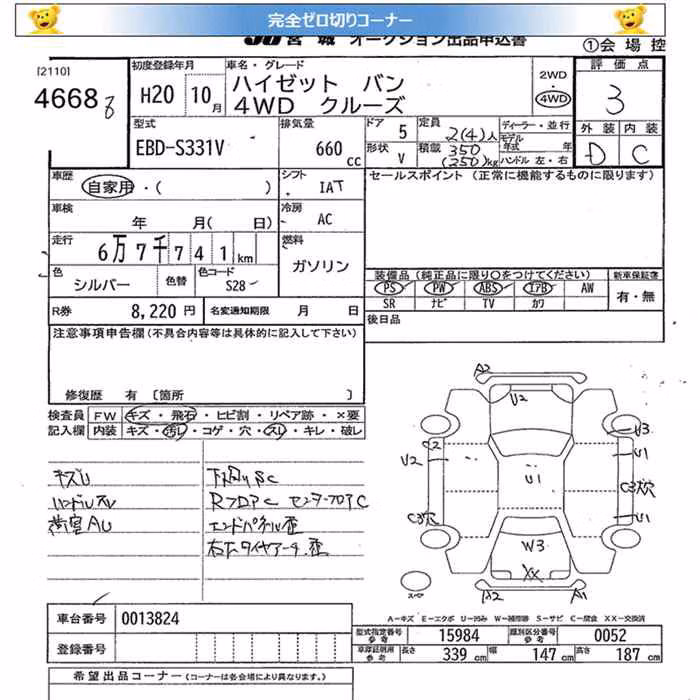 完全ゼロ切りコーナー
JU宮城 オークション出品申込書
①会場控
[2110]
初度登録年月
車名・グレード
2WD
・
4WD
評価点
4668
H20 10月
ハイゼット バン
4WD クルーズ
3
型式
排気量
ドア 5
定員 2(4)人
ディーラー・並行
モデル年式 年
外装 内装
EBD-S331V
660cc
形状 V
積載 350(250)kg
ハンドル 左・右
D C
車歴
自家用・( )
シフト IAT
セールスポイント (正常に機能するものに限ります)
車検
年 月( 日)
冷房 AC
走行
6万7千741km
燃料
ガソリン
色 シルバー
色替
色コード S28
装備品(純正品に限り○をつけてください)
新車保証書
PS PW ABS エアB AW
有・無
SR ナビ TV カワ
R券 8,220円
名変通知期限 月 日
後日品
注意事項申告欄(不具合内容等は具体的に記入して下さい)
修復歴 有〔箇所 〕
検査員 FW キズ・飛石・ヒビ割・リペア跡・×要
記入欄 内装 キズ・汚れ・コゲ・穴・スレ・キレ・破レ
キズU
ハンドルスレ
荷室AU
下廻りSC
RフロアC センターフロアC
エンドパネル歪
右右タイヤアーチ歪
A2
U2
U3
C2
V2
U1
U1
C3穴
C3穴
U1
W3
XX
A2
A1
スペ
A-キズ E-エクボ U-凹み W-補修跡 S-サビ C-腐食 XX-交換済
車台番号 0013824
型式指定番号 参考 15984
類別区分番号 参考 0052
登録番号
車庫証明用 参考 長さ 339cm 幅 147cm 高さ 187cm
希望出品コーナー(コーナーは各会場により異なります。)